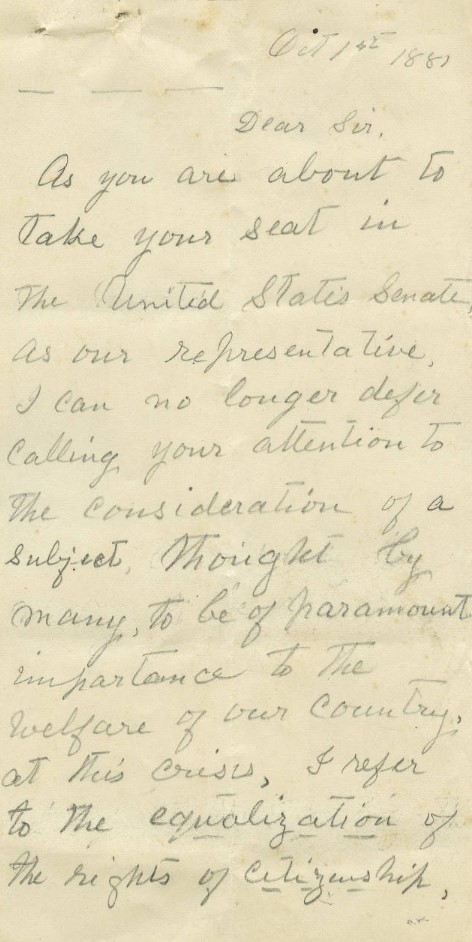 Oct 1st 1881
Dear Sir,
As you are about to
take your seat in
the United States Senate,
as our representative,
I can no longer defer
calling your attention to
the consideration of a
subject, thought by
many, to be of paramount
importance to the
welfare of our country,
at this crisis, I refer
to the equalization of
the rights of citizenship,